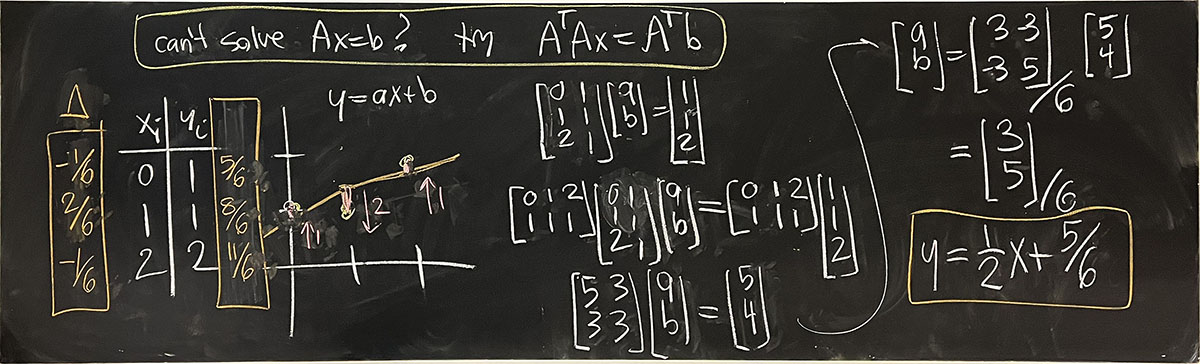 can't solve Ax=b? try AᵀAx=Aᵀb
y=ax+b
Δ xᵢ yᵢ
-1/6 0 1 5/6
2/6 1 1 8/6
-1/6 2 2 11/6
↑1 ↓2 ↑1
[0 1; 1 1; 2 1][a; b]=[1; 1; 2]
[0 1 2; 1 1 1][0 1; 1 1; 2 1][a; b]=[0 1 2; 1 1 1][1; 1; 2]
[5 3; 3 3][a; b]=[5; 4]
[a; b]=[3 -3; -3 5]/6 [5; 4]
=[3; 5]/6
y=1/2x+5/6